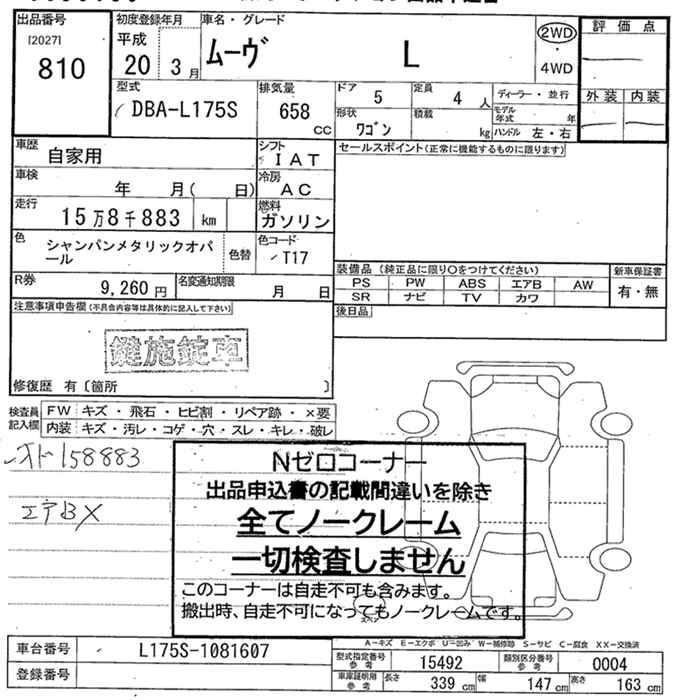 出品番号 初度登録年月 車名・グレード 評価点
[2027] 平成 ムーヴ L 2WD
810 20 3月 ・4WD
型式 排気量 ドア 5 定員 4人 ディーラー・並行 外装 内装
DBA-L175S 658 cc 形状 ワゴン 積載 kg モデル年式 年
ハンドル 左・右
車歴 自家用 シフト IAT セールスポイント(正常に機能するものに限ります)
車検 年 月( 日) 冷房 AC
走行 15万8千883 km 燃料 ガソリン
色 シャンパンメタリックオパール 色替 色コード T17
装備品(純正品に限り○をつけてください) 新車保証書
R券 9,260円 名変通知期限 月 日
PS PW ABS エアB AW 有・無
SR ナビ TV カワ
注意事項申告欄(不具合内容等は具体的に記入して下さい) 後日品
鍵施錠車
修復歴 有〔箇所 〕
検査員記入欄 FW キズ・飛石・ヒビ割・リペア跡・×要
内装 キズ・汚レ・コゲ・穴・スレ・キレ・破レ
オド158883
エアB×
Nゼロコーナー
出品申込書の記載間違いを除き
全てノークレーム
一切検査しません
このコーナーは自走不可も含みます。
搬出時、自走不可になってもノークレームです。
スペア
A-キズ E-エクボ U-凹み W-補修跡 S-サビ C-腐食 XX-交換済
車台番号 L175S-1081607 型式指定番号 参考 15492 類別区分番号 参考 0004
登録番号 車庫証明用 参考 長さ 339cm 幅 147cm 高さ 163cm